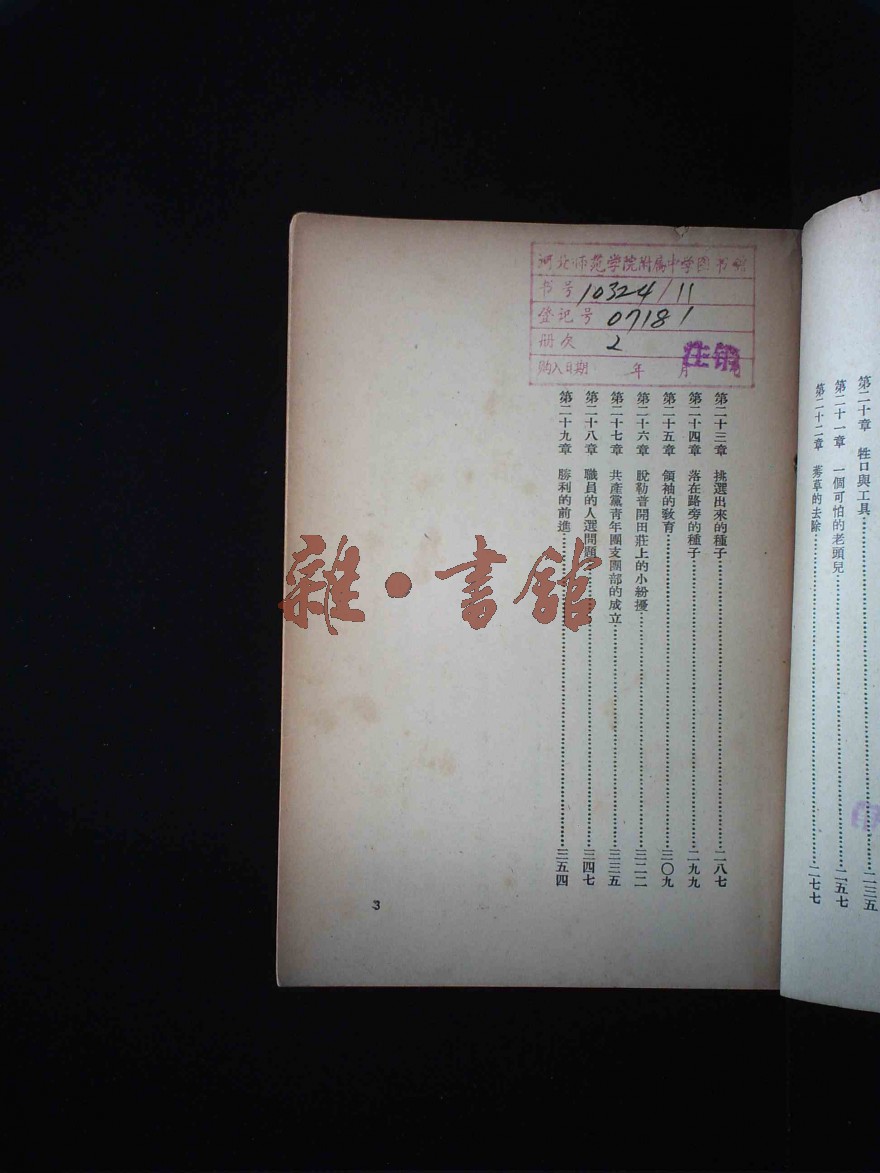 第二十章 牲口與工具 二三五
第二十一章 一個可怕的老頭兒 二五七
第二十二章 莠草的去除 二七七
河北师范学院附属中学图书馆
书号 10324/11
登记号 07181
册次 2
购入日期 年 月
注销
第二十三章 挑選出來的種子 二八七
第二十四章 落在路旁的種子 二九九
第二十五章 領袖的敎育 三〇九
第二十六章 脫勒普開田莊上的小紛擾 三二二
第二十七章 共產黨靑年團支團部的成立 三三五
第二十八章 職員的人選問題 三四七
第二十九章 勝利的前進 三五四
3
雜·書館